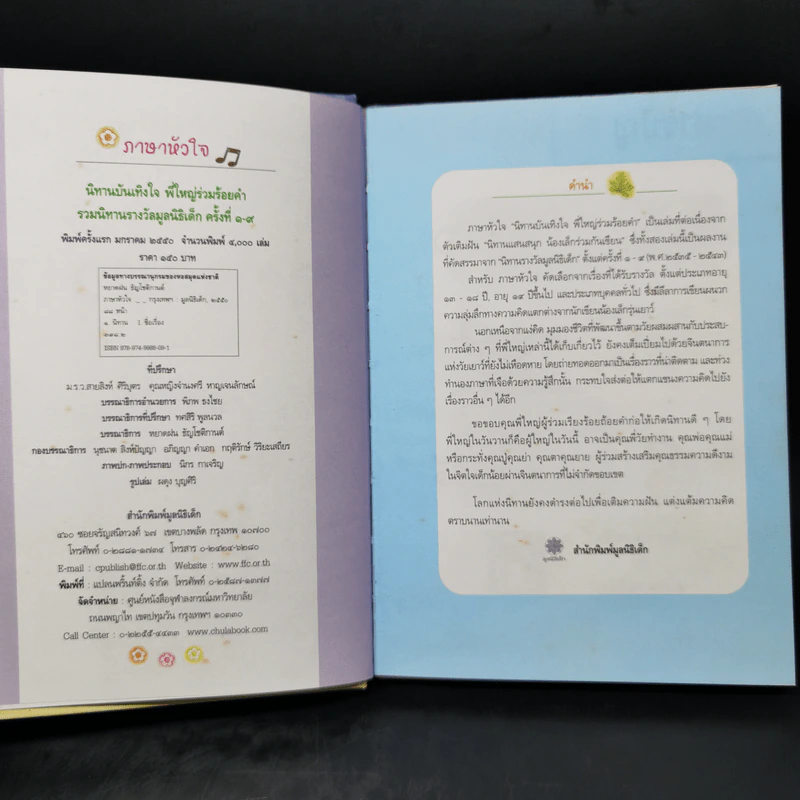 ภาษาหัวใจ
นิทานบันเทิงใจ พี่ใหญ่ร่วมร้อยคำ
รวมนิทานรางวัลมูลนิธิเด็ก ครั้งที่ ๑-๙
พิมพ์ครั้งแรก มกราคม ๒๕๕๐ จำนวนพิมพ์ ๔,๐๐๐ เล่ม
ราคา ๑๕๐ บาท
ข้อมูลทางบรรณานุกรมของหอสมุดแห่งชาติ
หยาดฝน ธัญโชติกานต์
ภาษาหัวใจ _ _ กรุงเทพฯ : มูลนิธิเด็ก, ๒๕๕๐
๘๘ หน้า
๑. นิทาน I. ชื่อเรื่อง
ISBN 978-974-
ที่ปรึกษา
ม.ร.ว.สายสิงห์ ศิริบุตร คุณหญิงจำนงศรี หาญเจนลักษณ์
บรรณาธิการอำนวยการ พิภพ ธงไชย
บรรณาธิการที่ปรึกษา ทศสิริ พูลนวล
บรรณาธิการ หยาดฝน ธัญโชติกานต์
กองบรรณาธิการ นุชนาฅ สิงห์ปัญญา อภิญญา คำเอก กฤติรักษ์ วิริยะเสถียร
ภาพปก-ภาพประกอบ นิกร กาเจริญ
รูปเล่ม ผดุง บุญศิริ
สำนักพิมพ์มูลนิธิเด็ก
๔๖๐ ซอยจรัญสนิทวงศ์ ๖๗ เขตบางพลัด กรุงเทพ ๑๐๗๐๐
โทรศัพท์ ๐-๒๘๘๑-๑๗๓๔ โทรสาร ๐-๒๔๒๔-๖๒๘๐
E-mail : cpublish@ffc.or.th Website : www.ffc.or.th
พิมพ์ที่ : แปลนพริ้นท์ติ้ง จำกัด โทรศัพท์ ๐-๒๕๘๗-๑๓๗๗
จัดจำหน่าย : ศูนย์หนังสือจุฬาลงกรณ์มหาวิทยาลัย
ถนนพญาไท เขตปทุมวัน กรุงเทพฯ ๑๐๓๓๐
Call Center : ๐-๒๒๕๕-๔๔๓๓ www.chulabook.com
คำนำ
ภาษาหัวใจ "นิทานบันเทิงใจ พี่ใหญ่ร่วมร้อยคำ" เป็นเล่มที่ต่อเนื่องจาก
ตัวเติมฝัน "นิทานแสนสนุก น้องเล็กร่วมกันเขียน" ซึ่งทั้งสองเล่มนี้เป็นผลงาน
ที่คัดสรรมาจาก "นิทานรางวัลมูลนิธิเด็ก" ตั้งแต่ครั้งที่ ๑ - ๙ (พ.ศ.๒๕๓๕ - ๒๕๔๓)
สำหรับ ภาษาหัวใจ คัดเลือกจากเรื่องที่ได้รับรางวัล ตั้งแต่ประเภทอายุ
๑๓ - ๑๘ ปี, อายุ ๑๙ ปีขึ้นไป และประเภทบุคคลทั่วไป ซึ่งมีลีลาการเขียนผนวก
ความลุ่มลึกทางความคิดแตกต่างจากนักเขียนน้องเล็กรุ่นเยาว์
นอกเหนือจากแง่คิด มุมมองชีวิตที่พัฒนาขึ้นตามวัยผสมผสานกับประสบ-
การณ์ต่าง ๆ ที่พี่ใหญ่เหล่านี้ได้เก็บเกี่ยวไว้ ยังคงเต็มเปี่ยมไปด้วยจินตนาการ
แห่งวัยเยาว์ที่ยังไม่เหือดหาย โดยถ่ายทอดออกมาเป็นเรื่องราวที่น่าติดตาม และท่วง
ทำนองภาษาที่เจือด้วยความรู้สึกนั้น กระทบใจส่งต่อให้แตกแขนงความคิดไปยัง
เรื่องราวอื่น ๆ ได้อีก
ขอขอบคุณพี่ใหญ่ผู้ร่วมเรียงร้อยถ้อยคำก่อให้เกิดนิทานดี ๆ โดย
พี่ใหญ่ในวันวานก็คือผู้ใหญ่ในวันนี้ อาจเป็นคุณพี่วัยทำงาน คุณพ่อคุณแม่
หรือกระทั่งคุณปู่คุณย่า คุณตาคุณยาย ผู้ร่วมสร้างเสริมคุณธรรมความดีงาม
ในจิตใจเด็กน้อยผ่านจินตนาการที่ไม่จำกัดขอบเขต
โลกแห่งนิทานยังคงดำรงต่อไปเพื่อเติมความฝัน แต่งแต้มความคิด
ตราบนานเท่านาน
มูลนิธิเด็ก
สำนักพิมพ์มูลนิธิเด็ก